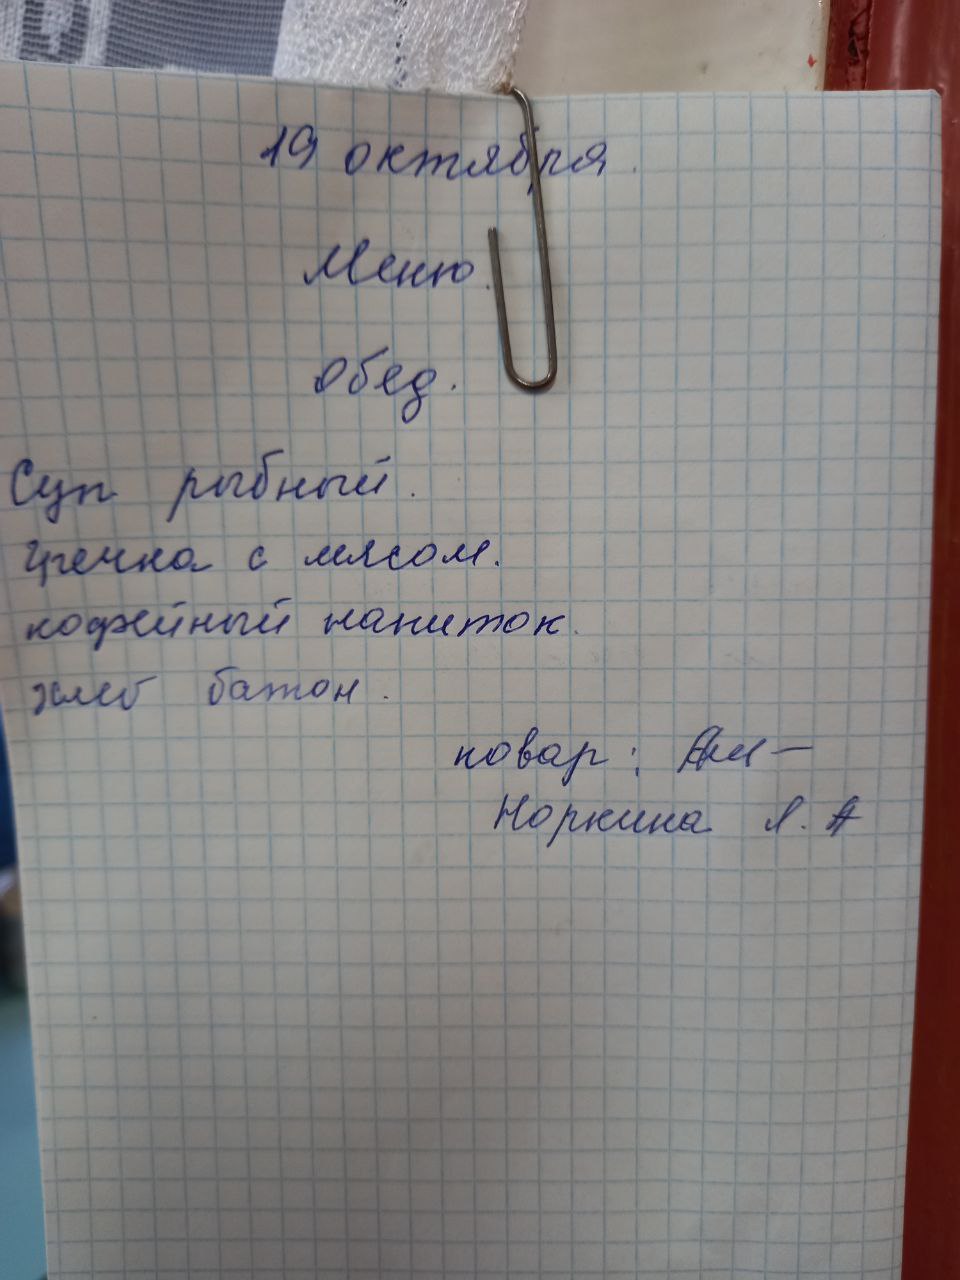 19 октября.
Меню.
Обед.
Суп рыбный.
гречка с мясом.
кофейный напиток.
хлеб батон.
повар:
Норкина Л. А